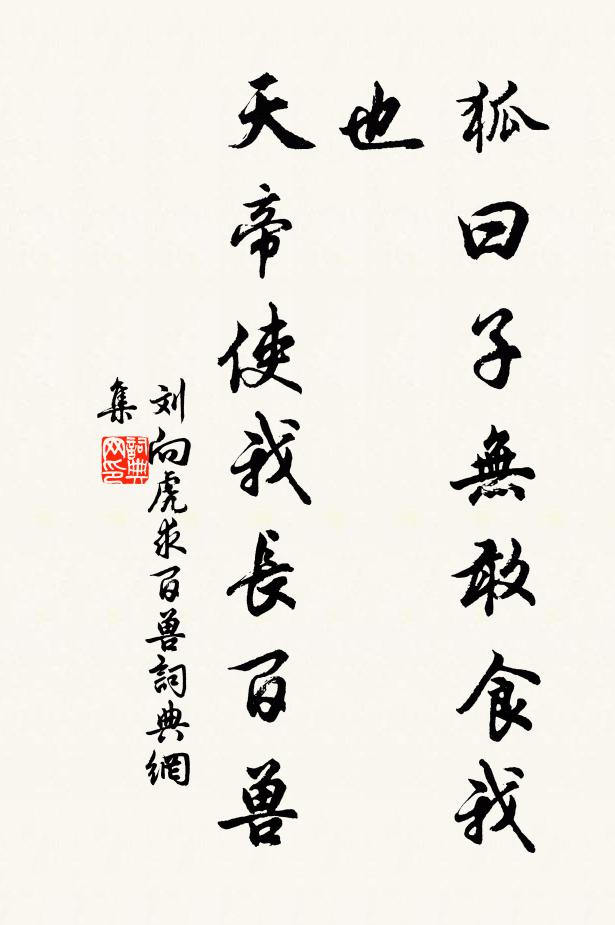 狐曰子無敢食我
也
天帝使我長百兽
刘向虎求百兽詞典網
集
詞典
网印